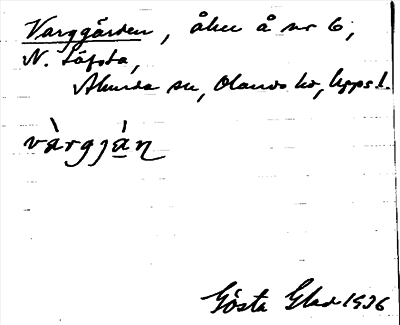 Varggården, åker å nr 6,
N. Löfsta,
Alunda sn, Olands hd, Upps. l.
vàrgjá̱n
Gösta Glad 1936